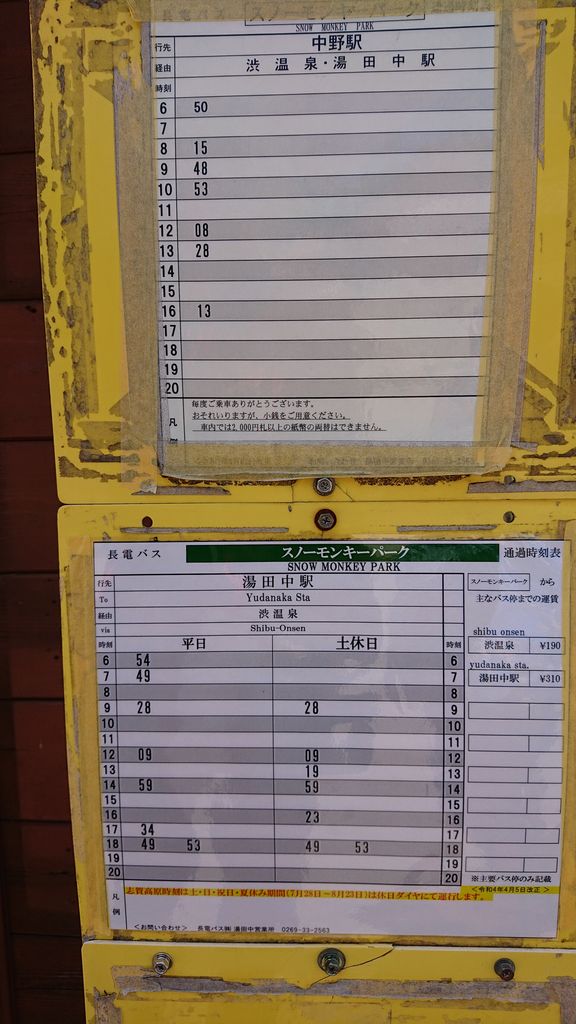 長電バス スノーモンキーパーク
SNOW MONKEY PARK
行先 中野駅
経由 渋温泉・湯田中駅
時刻
6 50
7
8 15
9 48
10 53
11
12 08
13 28
14
15
16 13
17
18
19
20
凡例
毎度ご乗車ありがとうございます。
おそれいりますが、小銭をご用意ください。
車内では2,000円札以上の紙幣の両替はできません。
長電バス スノーモンキーパーク 通過時刻表
SNOW MONKEY PARK
行先 湯田中駅
To Yudanaka Sta
経由 渋温泉
via Shibu-Onsen
時刻 平日 土休日 時刻
6 54 6
7 49 7
8 8
9 28 28 9
10 10
11 11
12 09 09 12
13 19 13
14 59 59 14
15 15
16 23 16
17 34 17
18 49 53 49 53 18
19 19
20 20
スノーモンキーパーク から
主なバス停までの運賃
shibu onsen
渋温泉 ¥190
yudanaka sta.
湯田中駅 ¥310
※主要バス停のみ記載
<令和4年4月5日改正>
凡例
志賀高原時刻は土・日・祝日・夏休み期間(7月28日~8月23日)は休日ダイヤにて運行します。
<お問い合わせ> 長電バス㈱ 湯田中営業所 0269-33-2563